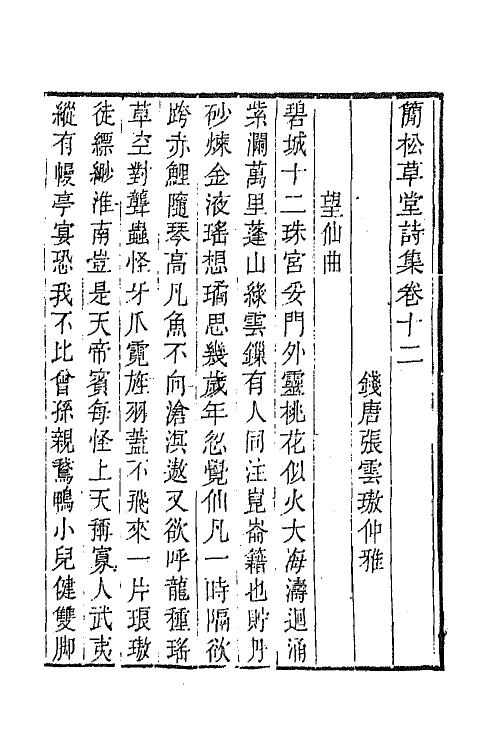 簡松草堂詩集卷十二
錢唐張雲璈仲雅
望仙曲
碧城十二珠宮妥門外靈桃花似火大海濤迴涌
紫瀾萬里蓬山綠雲鏁有人同注崑崙籍也貯丹
砂煉金液瑤想璚思幾歲年忽覺仙凡一時隔欲
跨赤鯉隨琴高凡魚不向滄溟遨又欲呼龍種瑤
草空對聾蟲怪牙爪霓旌羽蓋不飛來一片琅璈
徒縹緲淮南豈是天帝賓每怪上天稱寡人武夷
縱有幔亭宴恐我不比曾孫親鵞鴨小兒健雙脚